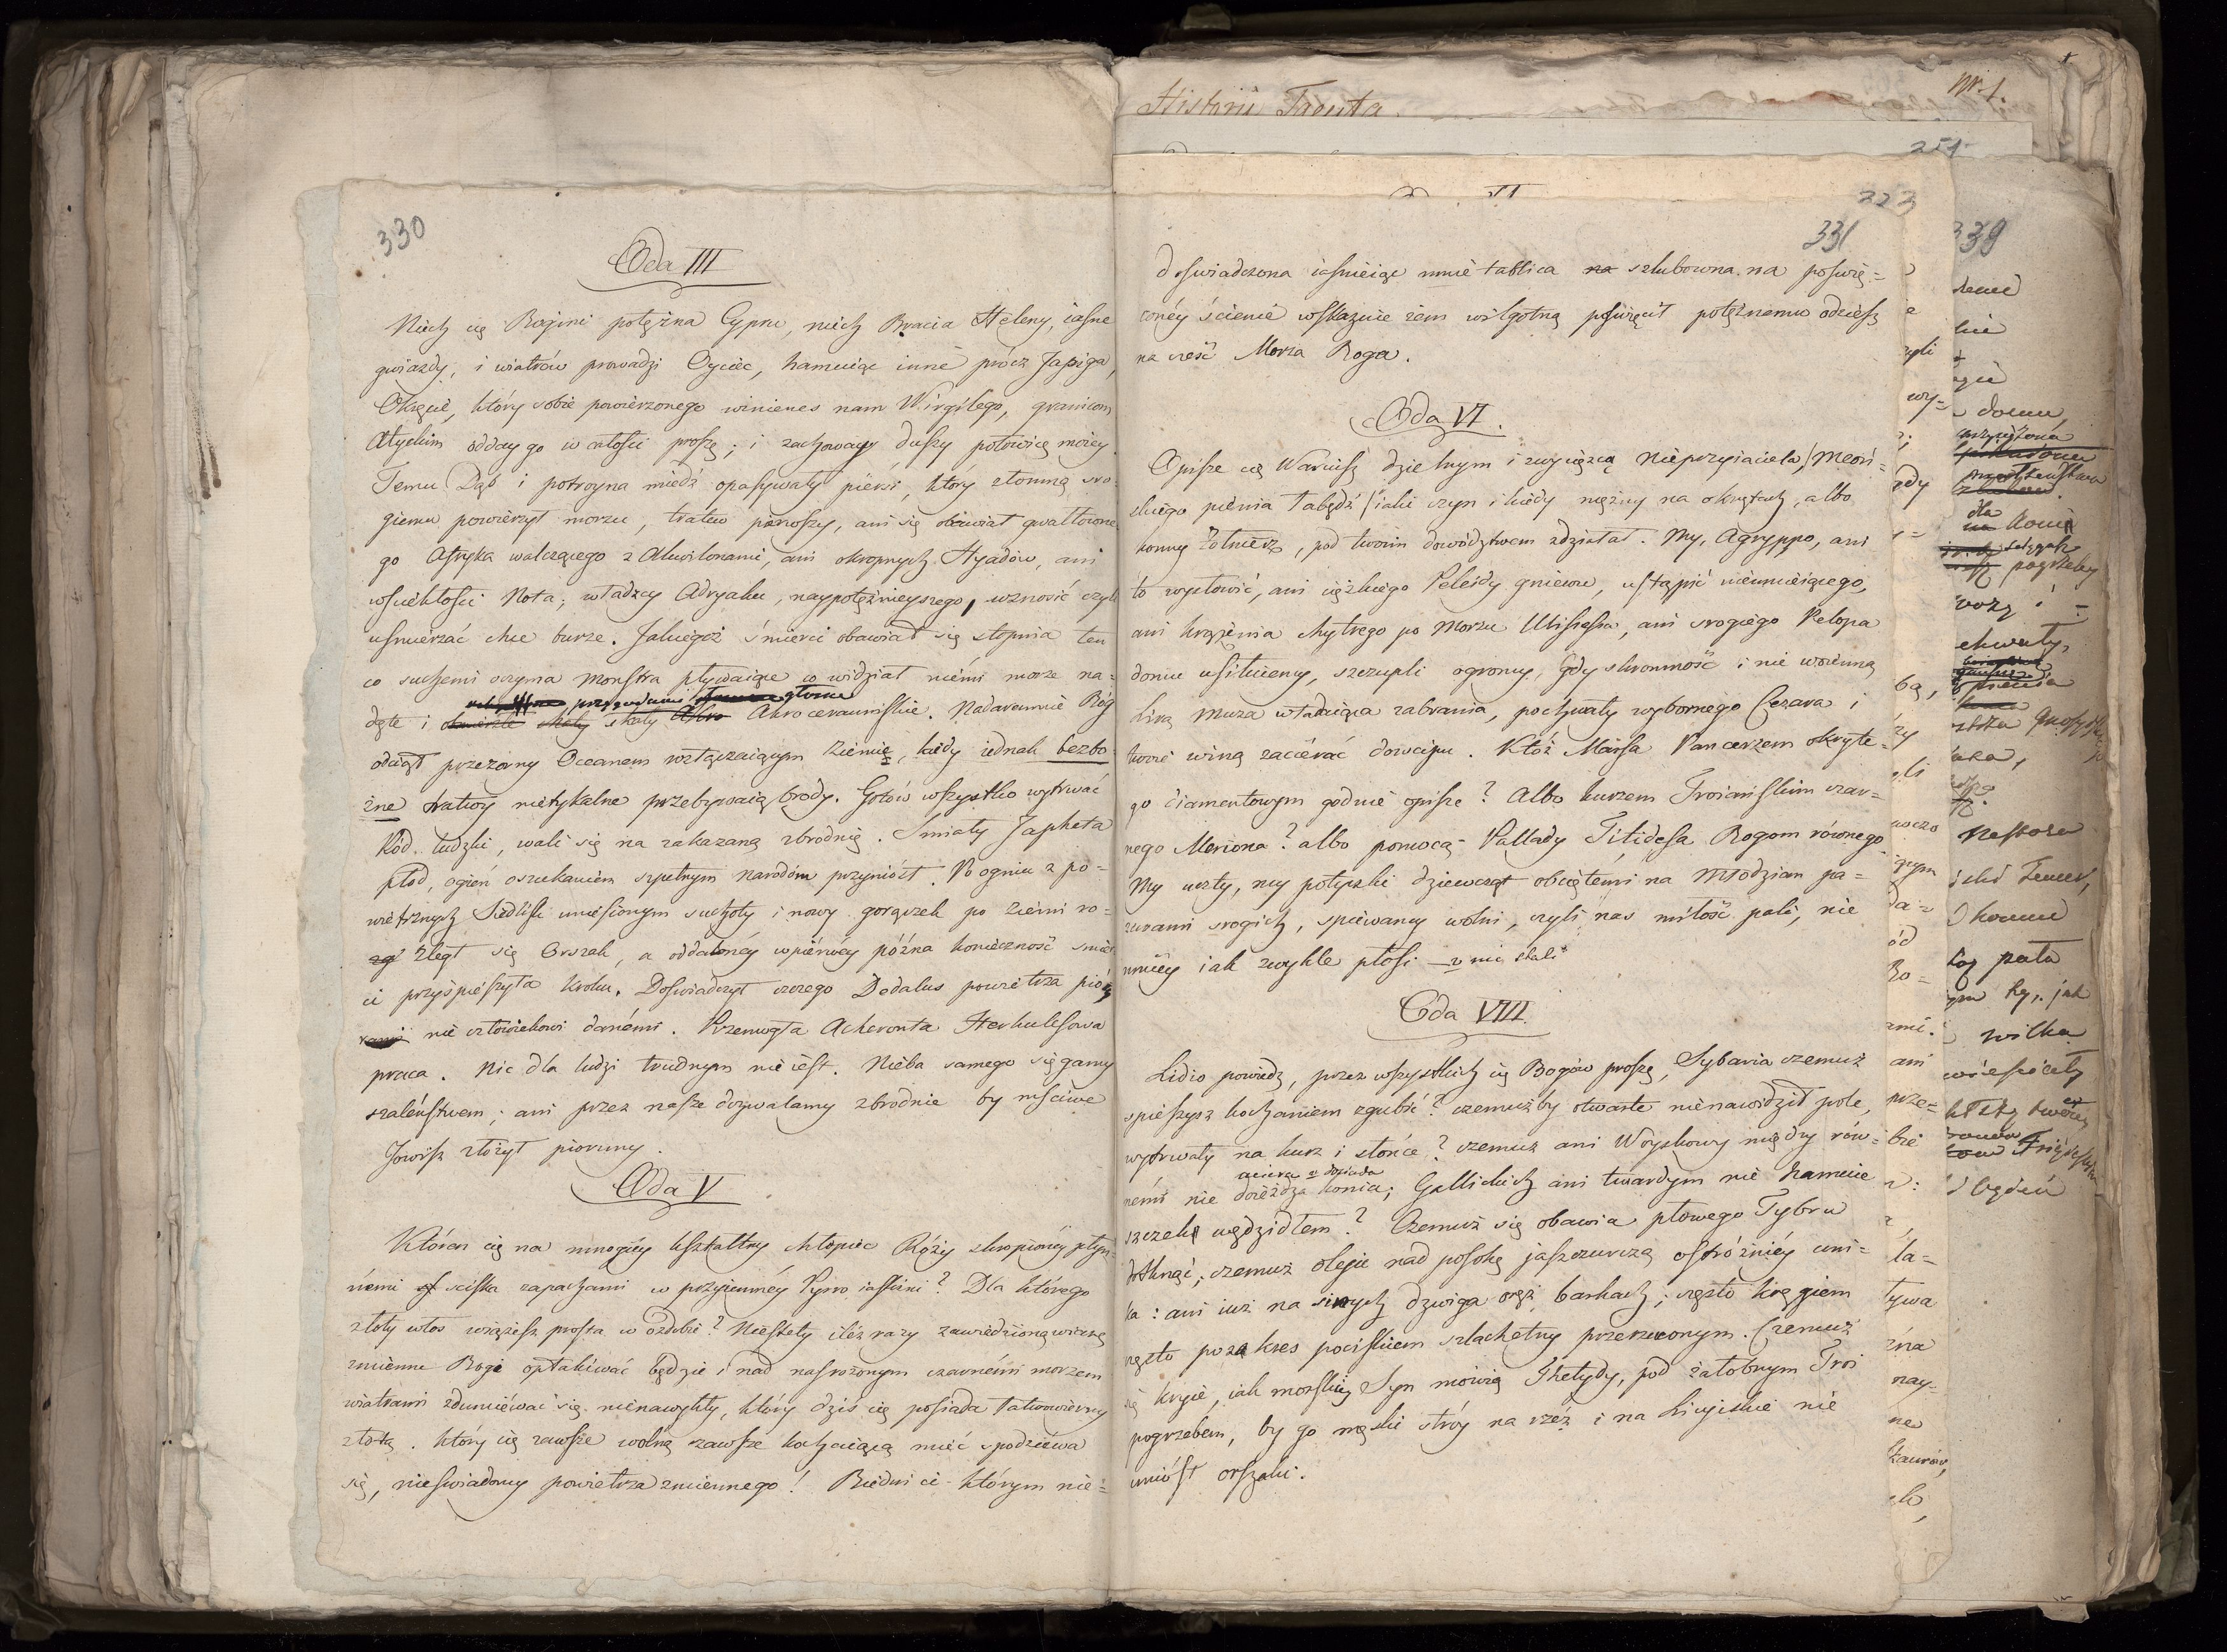 330
Oda III
Niech cię Bogini potężna Cypru, niech Bracia Heleny, iasne
gwiazdy, i wiatrów prowadzi Oyciec, hamuiąc inne prócz Japiga,
Okręcie, który sobie powierzonego winienes nam Wirgilego, granicom
Atyckim odday go w całości proszę; i zachoway duszy połowicę moiey.
Temu Dąb i potroyna miedź opasywały piersi, który złomną sro-
giemu powierzył morzu, tratew pierwszy, ani się obawiał gwałtowne
go Afryka walczącego z Akwilonami, ani okropnych Hyadów, ani
wściekłości Nota; władzcy Adryaku, naypotężnieyszego, wznosić czyli
uśmierzać chce burze. Jakiegoż śmierci obawiał się stopnia ten
co suchemi oczyma monstra pływaiące co widział niemi morze na=
dęte i skały skały Akro Akrocerauńskie. Nadaremnie Bóg
odciął przezorny Oceanem rozłączaiącym Ziemię, kiedy iednak bezbo=
żne tratwy nietykalne przebywaią brody. Gotów wszystko wytrwać
Ród ludzki, wali się na zakazaną zbrodnię. Śmiały Japheta
płod, ogień oszukaniem szpetnym narodom przyniósł. Po ogniu z po=
wietrznych Siedlisk uniesionym suchoty i nowy gorączek po Ziemi ro=
zległ się Orszak, a oddaloney wpierwey późna konieczność śmier
ci przyśpieszyła kroku. Doświadczył czczego Dedalus powietrza pióry
nie człowiekowi danémi. Przemogła Acheronta Herkulesowa
praca. Nic dla ludzi trudnym nie iest. Nieba samego sięgamy
szaleństwem; ani przez nasze dozwalamy zbrodnie by mściwe
Jowisz złożył pioruny.
Oda V
Któren cię na mnogiey kształtny chłopiec Róży skropioney płyn-
némi sciska zapachami w przyiemney Pyrro iaskini? Dla którego
złoty włos wiążesz prosta w ozdobie? Niestety ileż razy zawiedzioną wiarę
zmienne Bogi opłakiwać będzie i nad nasrożonym czarnémi morzem
wiatrami zdumiewać się nienawykły, który dziś cię posiada łatwowierny
złotą. Który cię zawsze wolną zawsze kochaiącą mieć spodziewa
się, nieświadomy powietrza zmiennego! Biedni ci którym nie=
Historii Tacyta.
Nr. 1.
251
223
331
doświadczona iaśnieiąc mnie tablica na szlubowna na poświę=
coney ścienie wskazuie żem wilgotną poświęcił potężnemu odzież
na cześć Morza Boga.
Oda VI.
Opisze cię Wariusz dzielnym i zwycięzcą nieprzyiaciela, Meoń-
skiego pienia łabędź iaki czyn i kiedy mężny na okrętach, albo
konny Żołnierz, pod twoim dowództwem zdziałał. My, Agryppo, ani
to wysłowić, ani ciężkiego Pelidy gniewu, ustąpić nieumieiącego,
ani krążenia chytrego po Morzu Ulissesa, ani srogiego Pelopa
domu usiłuiemy, szczupli ogromy, gdy skromność i nie woienną
Lirą Muza władaiąca zabrania, pochwały wybornego Cezara i
twoie winą zacierać dowcipu. Któż Marsa Pancerzem okryte=
go diamentowym godnie opisze? Albo kurzem Troiańskim czar=
nego Meriona? albo pomocą Pallady Titidesa Bogom równego
My uczty, my potyczki dziewcząt obciętemi na Młodzian pa=
zurami srogich, spiewamy wolni, czyli nas miłość pali, nie
mniey iak zwykle płosi
Oda VIII.
Lidio powiedz, przez wszystkich cię Bogów proszę, Sybaria czemuż
spieszysz kochaniem zgubić? czemużby otwarte nienawidził pole,
wytrwały na kurz i słońce? czemuż ani Woyskowy między rów=
nemi nie doieżdża konia; Gallickich ani twardym nie hamuie
szczęk wędzidłem? Czemuż się obawia płowego Tybru
dotknąć; czemuż oleie nad posokę jaszczurczą ostróżniey uni=
ka: ani iuż na sinych dzwiga oręż barkach; często kręgiem
często poza kres pociskiem szlachetny przerzuconym. Czemuż
się kryie, iak morskiey Syn mówią Thetydy, pod żałobnym Troi
pogrzebem, by go męski stróy na rzéź i na Licyiskie nie
uniósł orszaki.
339